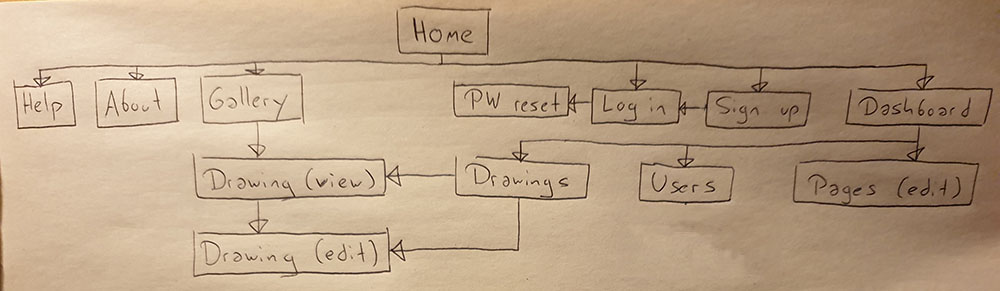 Home
Help
About
Gallery
PW reset
Log in
Sign up
Dashboard
Drawing (view)
Drawings
Users
Pages (edit)
Drawing (edit)